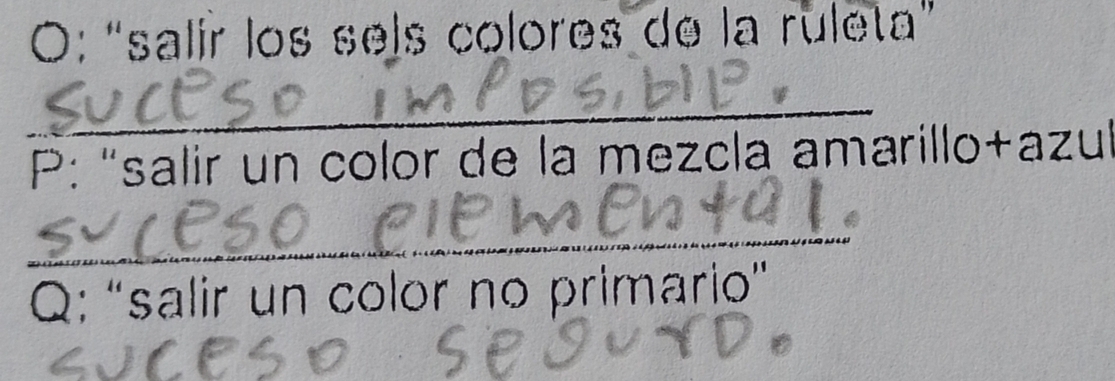 O: "salir los seis colores de la ruleta"
suceso imposible.
P: "salir un color de la mezcla amarillo+azul
suceso elemental.
Q: "salir un color no primario"
suceso seguro.